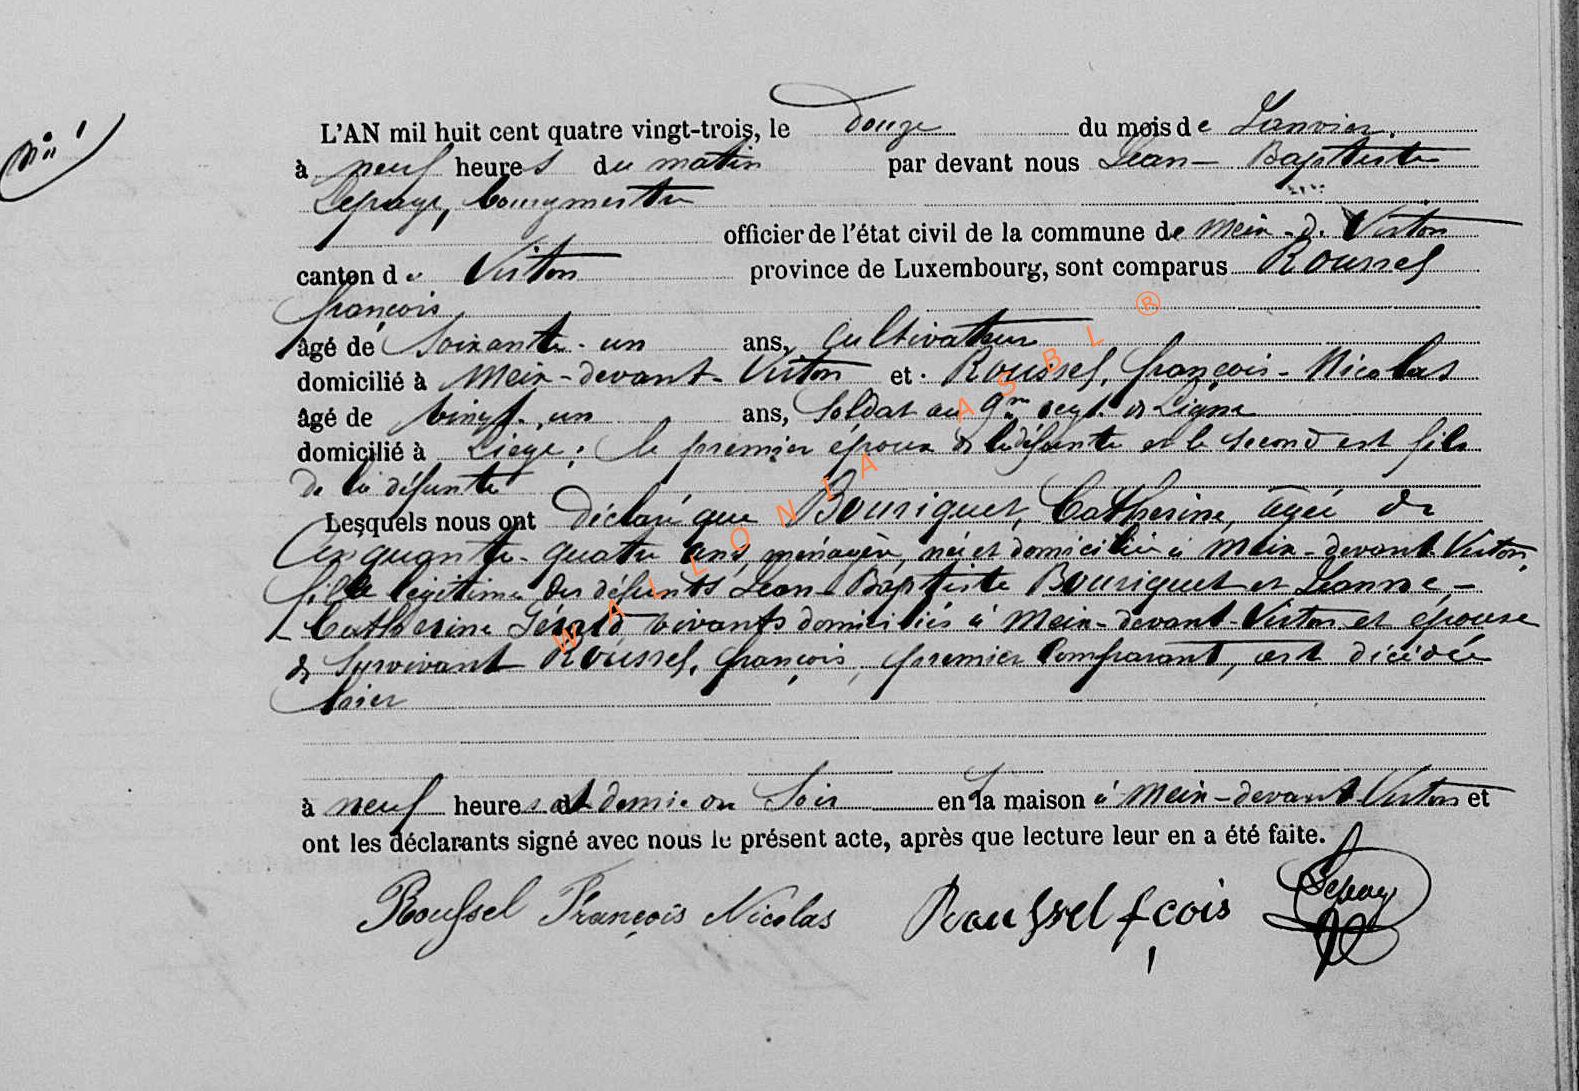 L'AN mil huit cent quatre vingt-trois, le douze du mois de Janvier.
à neuf heures du matin par devant nous Jean-Baptiste
Lepage, bourgmestre
officier de l'état civil de la commune de Meix-d. Virton
canton de Virton province de Luxembourg, sont comparus Roussel
françois
âgé de soixante-un ans, cultivateur
domicilié à Meix-devant-Virton et Roussel, françois-Nicolas
âgé de vingt-un ans, Soldat au 9me regt. de Ligne
domicilié à Liège; le premier époux de la défunte et le second est fils
de la défunte
Lesquels nous ont déclaré que Bouriquet, Catherine, agée de
Cinquante-quatre ans, ménagère, née et domiciliée à Meix-devant-Virton,
fille légitime des défunts Jean-Baptiste Bouriquet et Jeanne-
Catherine Gérard vivants domiciliés à Meix-devant-Virton et épouse
de survivant Roussel, françois, premier Comparant, est décédée
hier
à neuf heures et demie du Soir en la maison à Meix-devant-Virton et
ont les déclarants signé avec nous le présent acte, après que lecture leur en a été faite.
Roussel François Nicolas Roussel fçois Lepage
WALLONIA ASBL ®